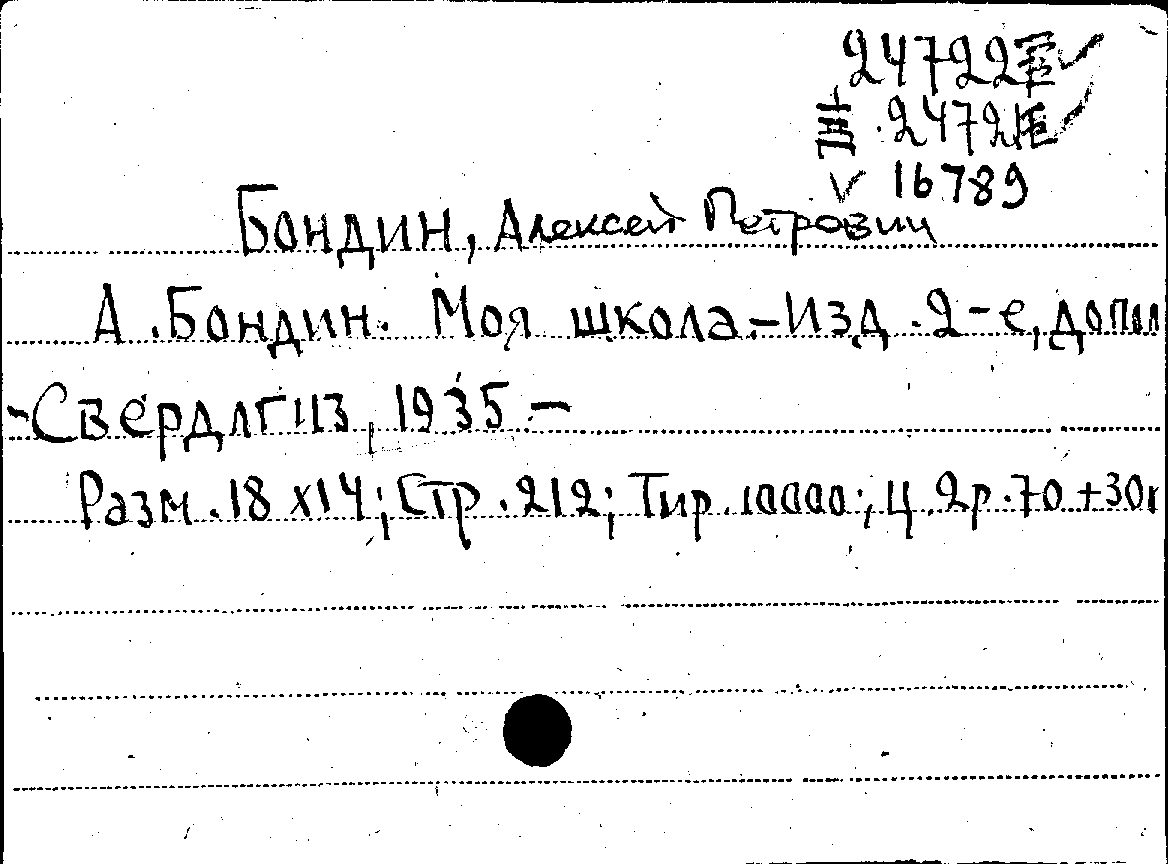 24722 ✓
2472
✓ 16789
Бондин, Алексей Петрович
А. Бондин. Моя школа.-Изд. 2-е, допол
-Свердлгиз, 1935.-
Разм. 18х14; Стр. 212; Тир. 10000; Ц. 2р. 70+30к